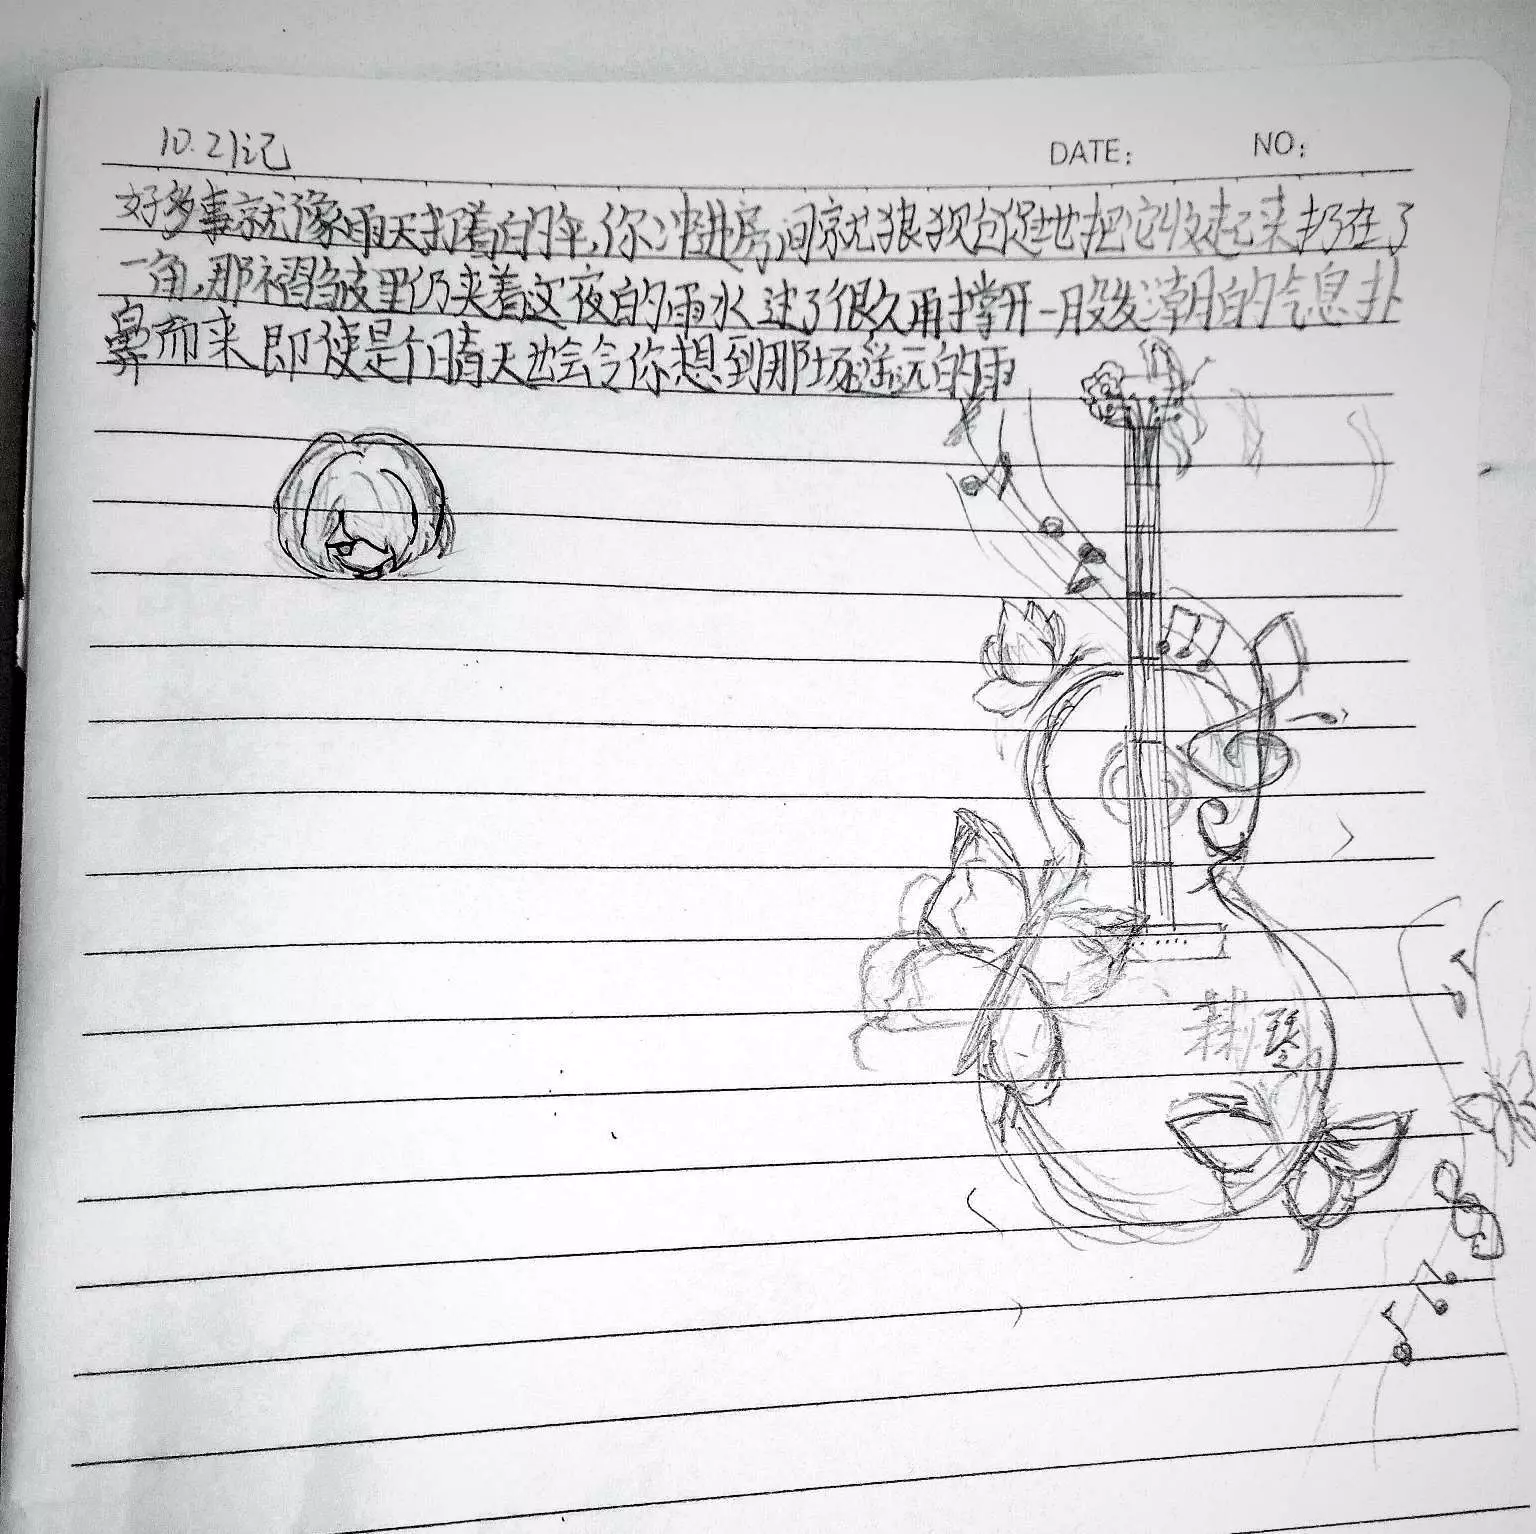 10.21记
DATE: NO:
好多事就像雨天打着的伞,你冲进房间就狼狈仓促地把它收起来扔在了
一角,那褶皱里仍夹着这夜的雨水过了很久再撑开一股发潮的气息扑
鼻而来即使是个晴天也会令你想到那场遥远的雨